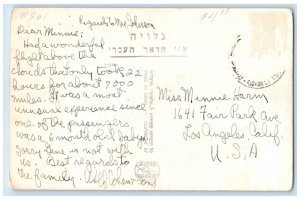 Regards to
Dear Minnie:
Had a wonderful
flight above the
clouds that only took 22
hours for about 9000
miles. It was a most
unusual experience since
one of the passengers
was a 6 month old baby.
Sorry Gene is not with
us. Best regards to
the family.
גלוית
עי״ הדאר העברי
Miss Minnie Karm
1641 Fair Park Ave
Los Angeles, Calif.
U.S.A